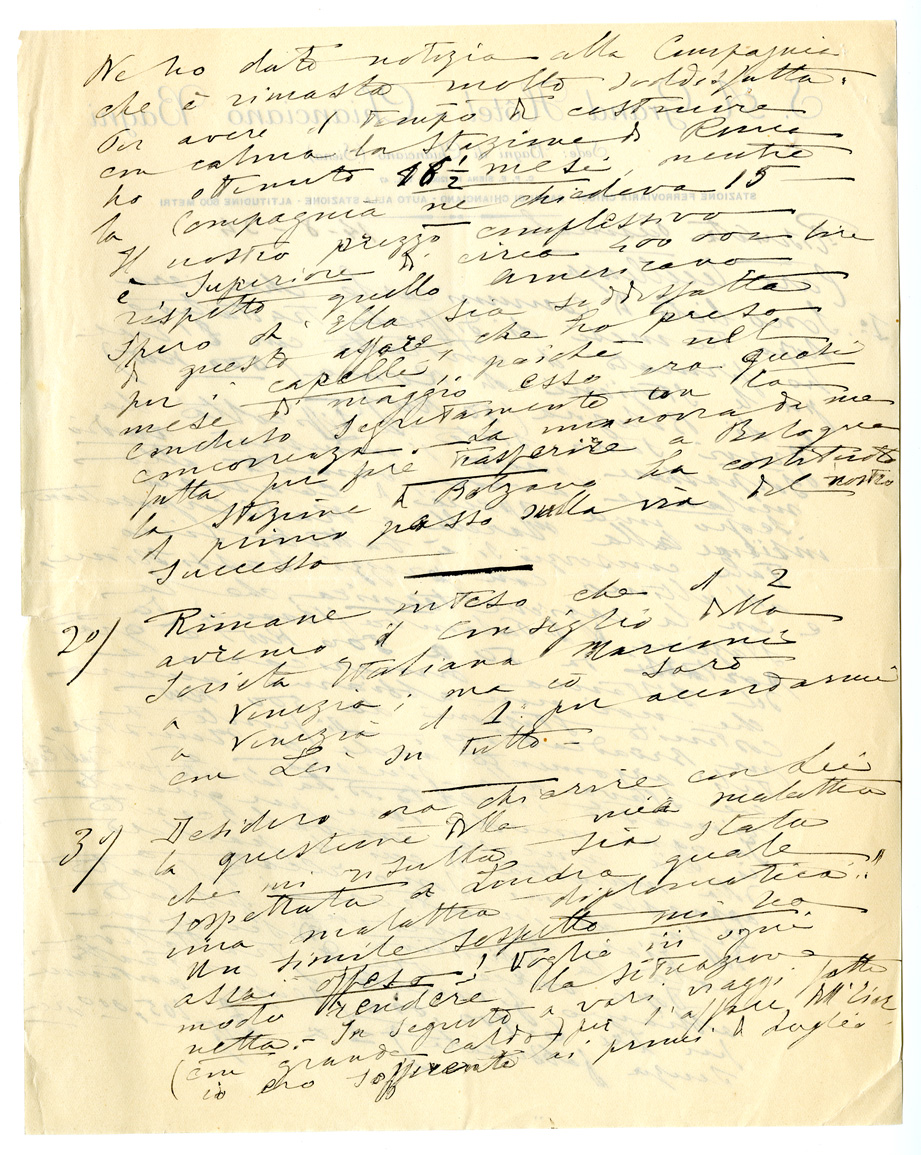 Ne ho dato notizia alla Compagnia
che è rimasta molto soddisfatta.
Per avere il tempo di costruire
con calma la Stazione di Roma
ho ottenuto 18 1/2 mesi, mentre
la Compagnia ne chiedeva 15
Il nostro prezzo complessivo
è superiore di circa 400.000 lire
rispetto quello americano
Spero ch'Ella sia soddisfatta
di questo affare, che ho preso
per i capelli, poichè nel
mese di maggio esso era quasi
concluso segretamente con la
concorrenza. La manovra da me
fatta per far trasferire a Bologna
la Stazione di Bolzano ha costituito
il primo passo sulla via del nostro
successo
2°/ Rimane inteso che il 2
avremo il Consiglio della
Società Italiana Marconi
a Venezia; ma io sarò
a Venezia il 1° per accordarmi
con Lei su tutto.
3°/ Desidero ora chiarire con Lei
la questione della mia malattia
che mi risulta sia stata
sospettata a Londra quale
una malattia diplomatica."
Un simile sospetto mi ha
assai offeso! Voglio in ogni
modo rendere la situazione
netta. In seguito a vari viaggi fatti
(con grande caldo) per l'affare dell'Eiar
io ero sofferente ai primi di Luglio
S. A. Grand Hôtel Chianciano Bagni
STAZIONE FERROVIARIA CHIUSI - CHIANCIANO - AUTO ALLA STAZIONE - ALTITUDINE 500 METRI